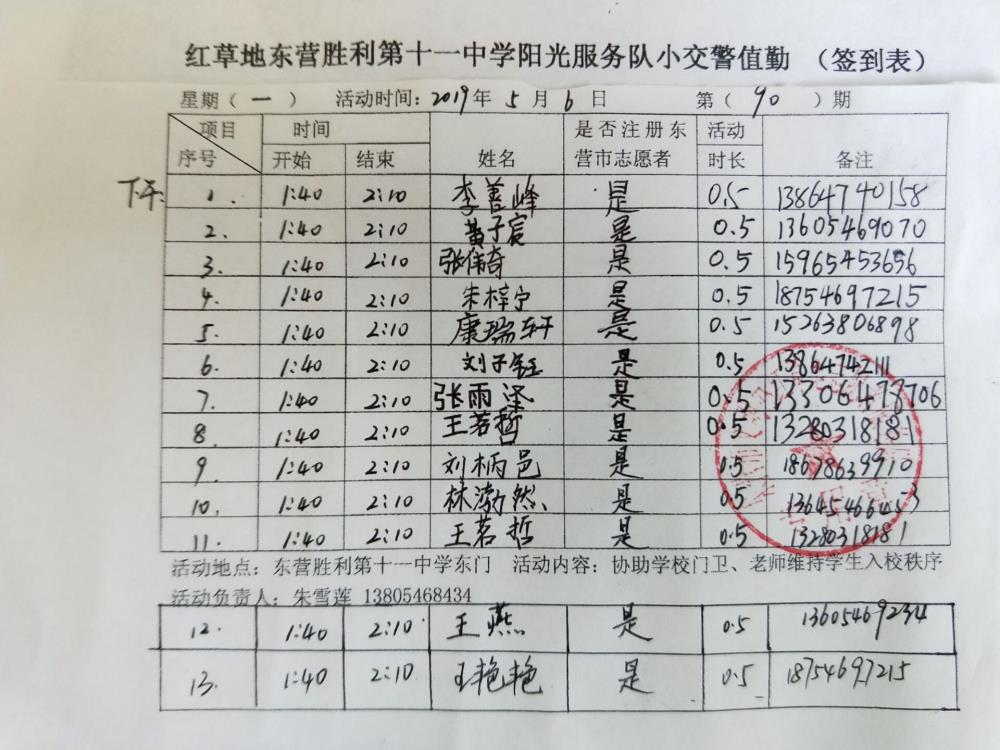 红草地东营胜利第十一中学阳光服务队小交警值勤 （签到表）
星期（一） 活动时间：2019年 5月 6日 第（90）期
项目 时间 是否注册东 活动
序号 开始 结束 姓名 营市志愿者 时长 备注
下午:
1. 1:40 2:10 李善峰 是 0.5 13864740158
2. 1:40 2:10 黄子宸 是 0.5 13605469070
3. 1:40 2:10 张伟奇 是 0.5 15965453656
4. 1:40 2:10 朱梓宁 是 0.5 18754697215
5. 1:40 2:10 康瑞轩 是 0.5 15263806898
6. 1:40 2:10 刘子钰 是 0.5 13864742111
7. 1:40 2:10 张雨泽 是 0.5 13306478706
8. 1:40 2:10 王若哲 是 0.5 1328031818
9. 1:40 2:10 刘柄邑 是 0.5 18678639910
10. 1:40 2:10 林渤然 是 0.5 13645466453
11. 1:40 2:10 王茗哲 是 0.5 13280318181
活动地点：东营胜利第十一中学东门 活动内容：协助学校门卫、老师维持学生入校秩序
活动负责人：朱雪莲 13805468434
12. 1:40 2:10 王燕 是 0.5 13605469234
13. 1:40 2:10 王艳艳 是 0.5 18754697215